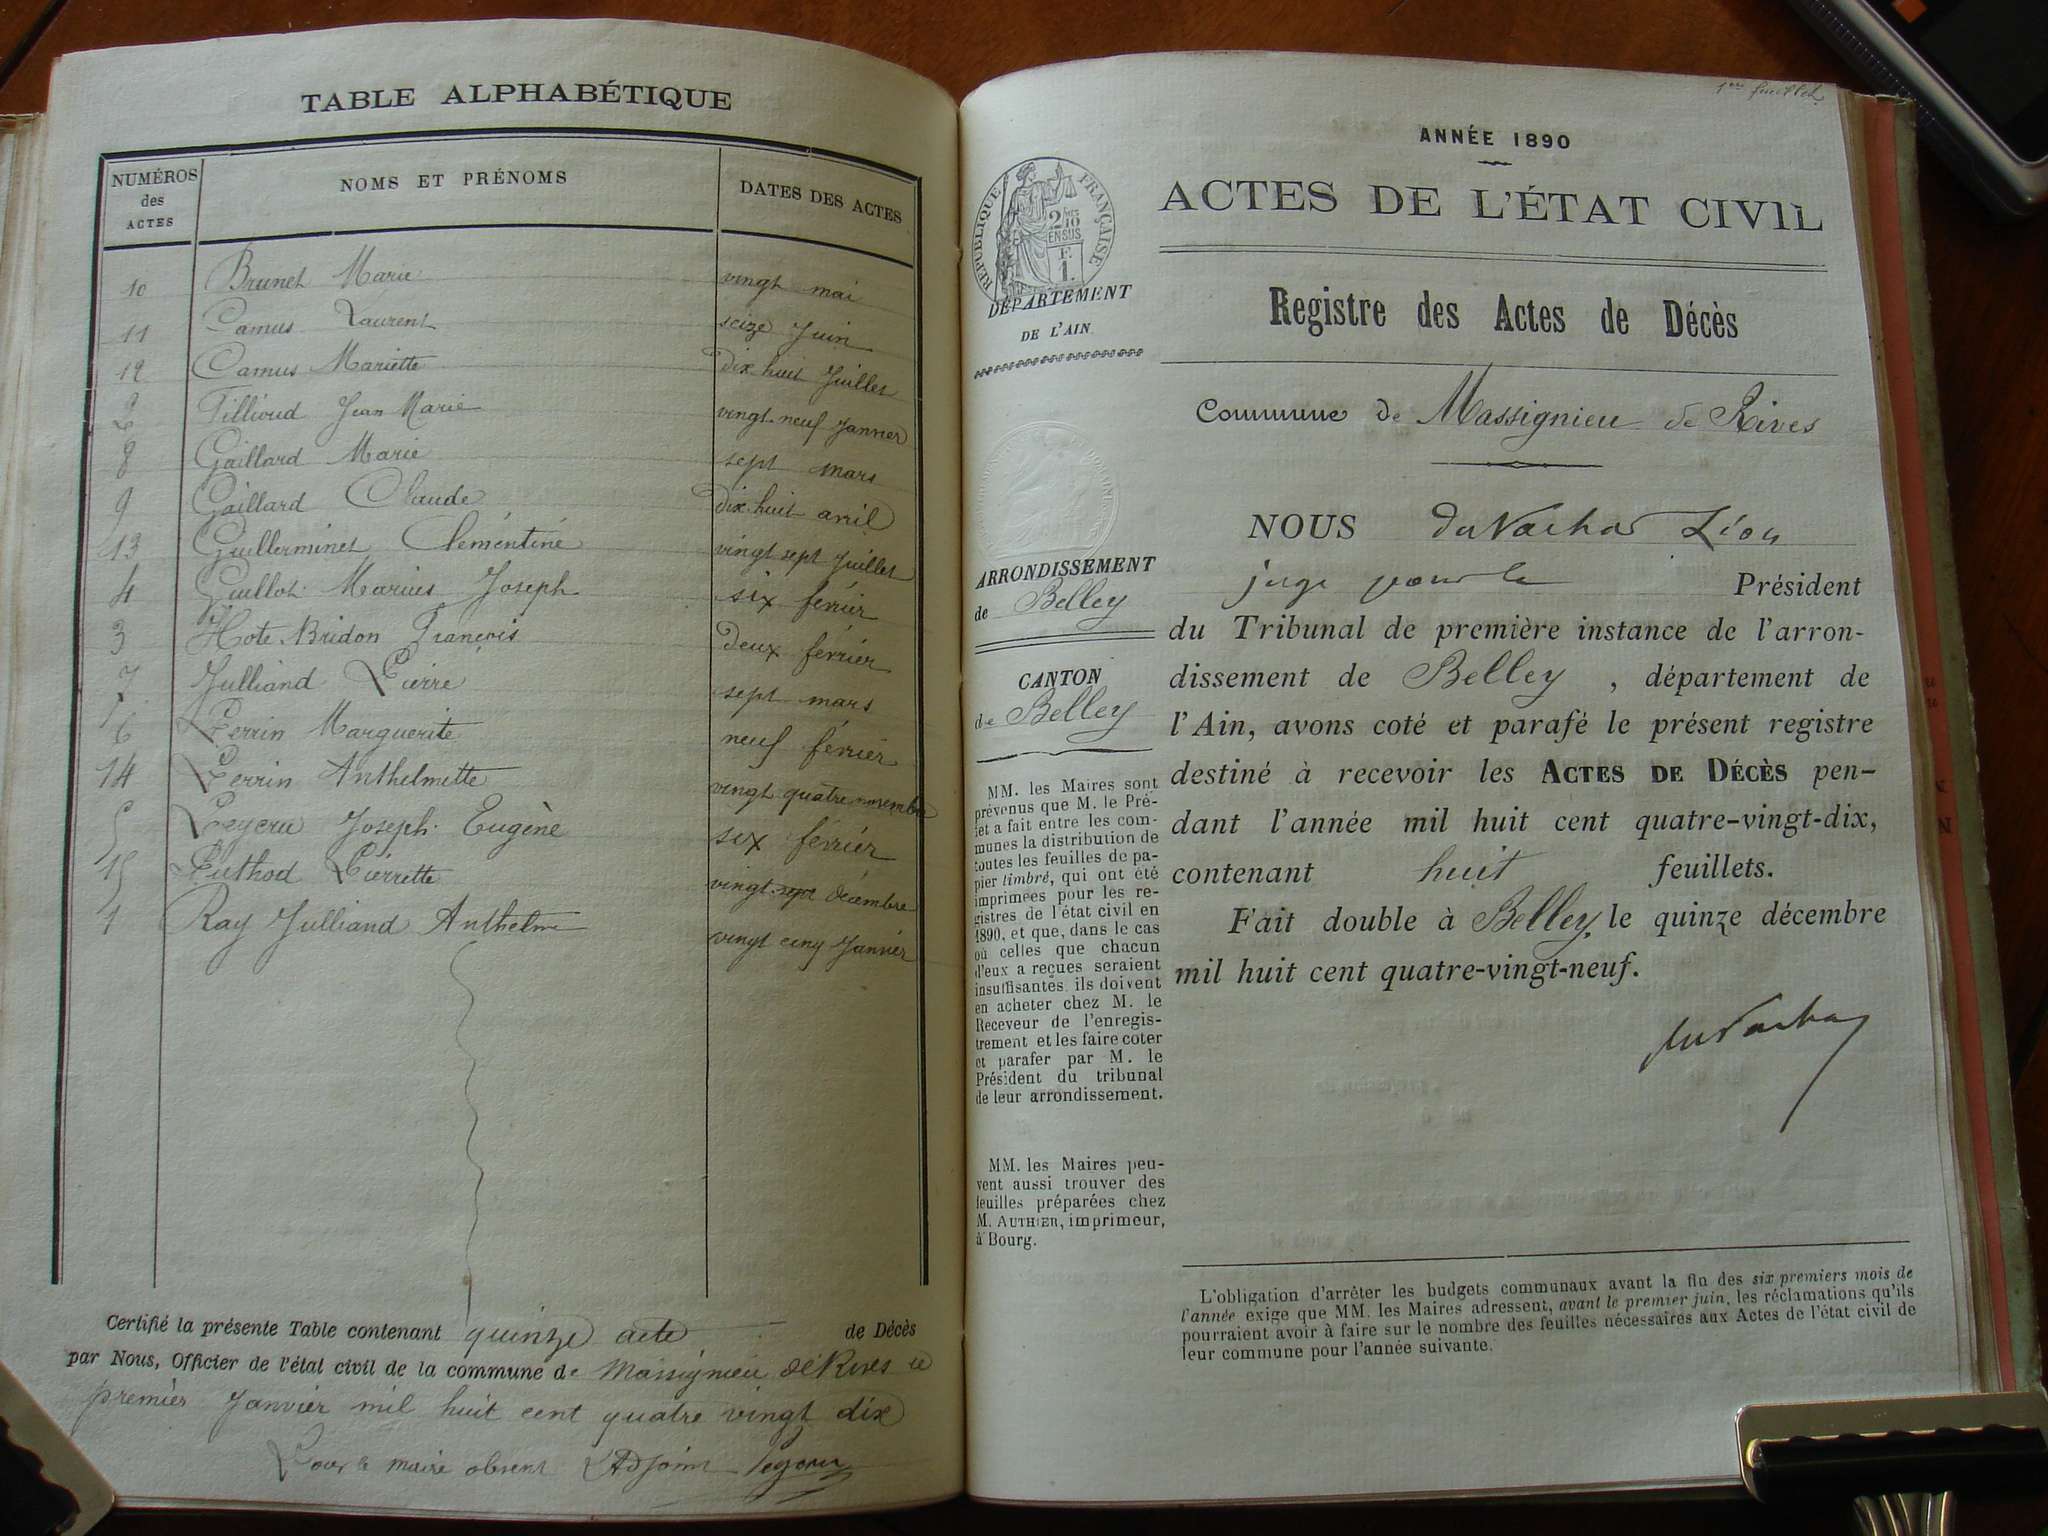 TABLE ALPHABÉTIQUE
NUMÉROS des ACTES NOMS ET PRÉNOMS DATES DES ACTES
10 Brunet Marie vingt mai
11 Camus Laurent seize Juin
12 Camus Mariette dix huit Juillet
2 Fillioud Jean Marie vingt-neuf Janvier
8 Gaillard Marie sept mars
9 Gaillard Claude dix-huit avril
13 Guillerminet Clémentine vingt sept Juillet
4 Guillot Marius Joseph six février
3 Hote-Bridon François deux février
7 Julliand Pierre sept mars
6 Perrin Marguerite neuf février
14 Perrin Anthelmette vingt quatre novembre
5 Peyeru Joseph Eugène six février
15 Puthod Pierrette vingt-sept décembre
1 Ray Julliand Anthelme vingt cinq Janvier
Certifié la présente Table contenant quinze acte de Décès
par Nous, Officier de l'état civil de la commune de Massignieu de Rives le
premier Janvier mil huit cent quatre vingt dix
Pour le maire absent Adjoint
1er feuillet
ANNÉE 1890
ACTES DE L'ÉTAT CIVIL
RÉPUBLIQUE FRANÇAISE
2/10 EN SUS
F. 1.
DÉPARTEMENT
DE L'AIN
Registre des Actes de Décès
Commune de Massignieu de Rives
ARRONDISSEMENT
de Belley
CANTON
de Belley
MM. les Maires sont
prévenus que M. le Pré-
fet a fait entre les com-
munes la distribution de
toutes les feuilles de pa-
pier timbré, qui ont été
imprimées pour les re-
gistres de l'état civil en
1890, et que, dans le cas
où celles que chacun
d'eux a reçues seraient
insuffisantes, ils doivent
en acheter chez M. le
Receveur de l'enregis-
trement et les faire coter
et parafer par M. le
Président du tribunal
de leur arrondissement.
MM. les Maires peu-
vent aussi trouver des
feuilles préparées chez
M. AUTHIER, imprimeur,
à Bourg.
NOUS duVachat Léon
juge pour le Président
du Tribunal de première instance de l'arron-
dissement de Belley, département de
l'Ain, avons coté et parafé le présent registre
destiné à recevoir les ACTES DE DÉCÈS pen-
dant l'année mil huit cent quatre-vingt-dix,
contenant huit feuillets.
Fait double à Belley, le quinze décembre
mil huit cent quatre-vingt-neuf.
duVachat
L'obligation d'arrêter les budgets communaux avant la fin des six premiers mois de
l'année exige que MM. les Maires adressent, avant le premier juin, les réclamations qu'ils
pourraient avoir à faire sur le nombre des feuilles nécessaires aux Actes de l'état civil de
leur commune pour l'année suivante.